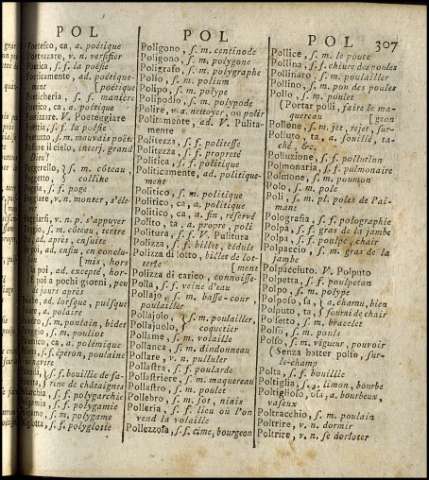 POL
POL
POL
307
poëtico, ca, a. poétique
poetizzare, v. n. versifier
poetica, s. f. la poésie
poeticamente, ad. poétique-
[poétique
s. f. maniere
ca, a. poétique
V. Poeteggiare
s. f. la poésie
s. m. mauvais poëte
il cielo, interj. grand
Dieu!
s. m. côteau,
colline
s. f. page
v. n. monter, s'éle-
v. n. p. s'appuyer
s. m. côteau, tertre
ad. après, ensuite
ad. ensuite, en conclu-
[mis, hor
poi, ad. excepté, hor-
poi a pochi giorni, peu
de jours après
ad. lorsque, puisque
a. polaire
s. m. poulain, bidet
s. m. pouliot
ca, a. polémique
s. f. éperon, poulaine
s. f. bouillie de fa-
rine de châtaignes
s. f. polygarchie
s. f. polygamie
s. m. polygame
s. f. polyglotte
Poligono, s. m. centinode
Poligono, s. m. polygone
Poligrafo, s. m. polygraphe
Polio, s. m. polium
Polipo, s. m. polype
Polipodio, s. m. polypode
Polire, v. a. nettoyer, ou polir
Politamente, ad. V. Pulita-
mente
Politezza, s. f. politesse
Politezza, s. f. propreté
Politica, s. f. politique
Politicamente, ad. politique-
ment
Politico, s. m. politique
Politico, ca, a. politique
Politico, ca, a. fin, réservé
Polito, ta, a. propre, poli
Politura, s. f. V. Pulitura
Polizza, s. f. billet, bédule
Polizza di lotto, billet de lot-
terie [ment
Polizza di carico, connoisse-
Polla, s. f. veine d'eau
Pollajo, s. m. basse-cour
poulailler
Pollajolo, } s. m. poulailler,
Pollajuolo, } coquetier
Pollame, s. m. volaille
Pollanca, s. m. dindonneau
Pollare, v. n. pulluler
Pollastra, s. f. poularde
Pollastriere, s. m. maquereau
Pollastro, s. m. poulet
Pollebro, s. m. sot, niais
Polleria, s. f. lieu où l'on
vend la volaille
Pollezzola, s. f. cime, bourgeon
Pollice, s. m. le pouce
Pollina, s. f. chiure des poules
Pollinaro, s. m. poulailler
Pollino, s. m. pou des poules
Pollo, s. m. poulet
(Portar polli, faire le ma-
quereau [geon
Pollone, s. m. jet, rejet, sur-
Polluto, ta, a. souillé, ta-
ché, &c.
Polluzione, s. f. pollution
Polmonaria, s. f. pulmonaire
Polmone, s. m. poumon
Polo, s. m. pole
Poli, s. m. pl. poles de l'ai-
mant
Polografia, s. f. polographie
Polpa, s. f. gras de la jambe
Polpa, s. f. poulpe, chair
Polpaccio, s. m. gras de la
jambe
Polpacciuto. V. Polputo
Polpetta, s. f. poulpeton
Polpo, s. m. polype
Polposo, sa, } a. charnu, bien
Polputo, ta, } fourni de chair
Polsetto, s. m. bracelet
Polso, s. m. pouls
Polso, s. m. vigueur, pouvoir
(Senza batter polso, sur-
le-champ
Polta, s. f. bouillie
Poltiglia, s. f. limon, bourbe
Poltiglioso, osa, a. bourbeux,
vaseux
Poltracchio, s. m. poulain
Poltrire, v. n. dormir
Poltrire, v. n. se dorloter